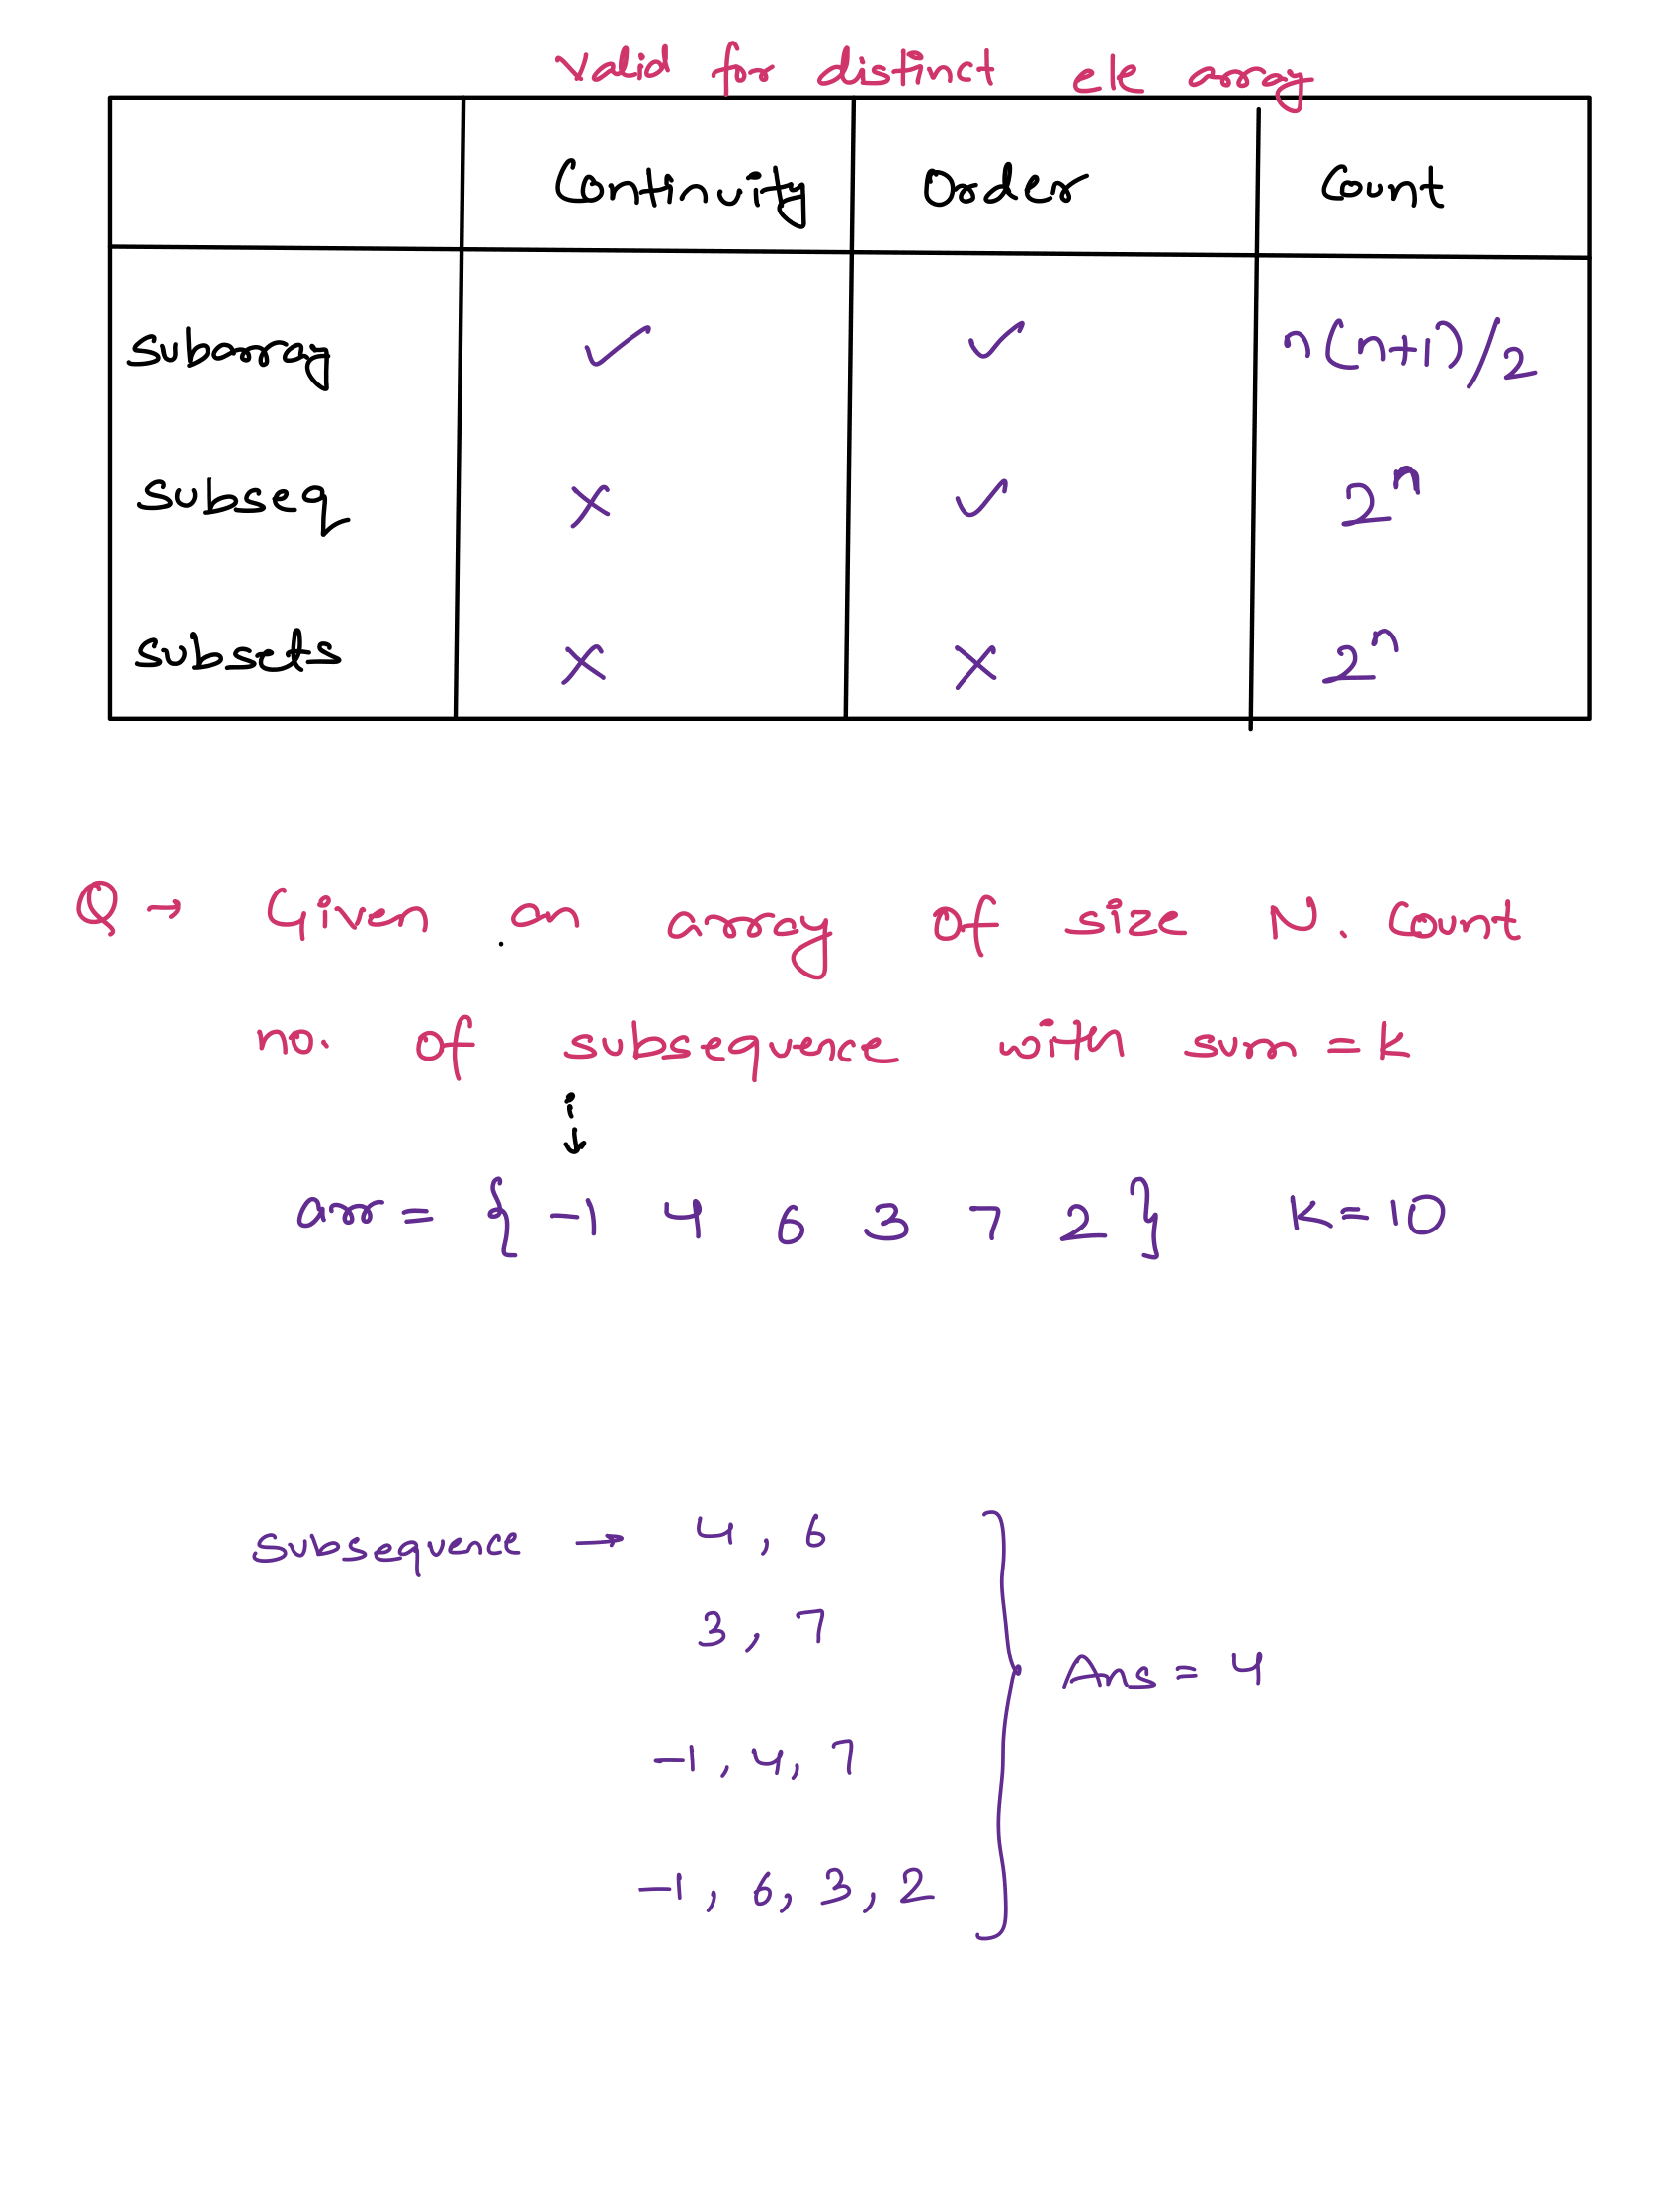 valid for distinct ele array
Continuity Order Count
subarray ✓ ✓ n(n+1)/2
subseq × ✓ 2^n
subsets × × 2^n
Q → Given an array of size N. Count
no. of subsequence with sum = k
i
↓
arr = { -1 4 6 3 7 2 } K = 10
subsequence → 4, 6
3, 7
-1, 4, 7
Ans = 4
-1, 6, 3, 2